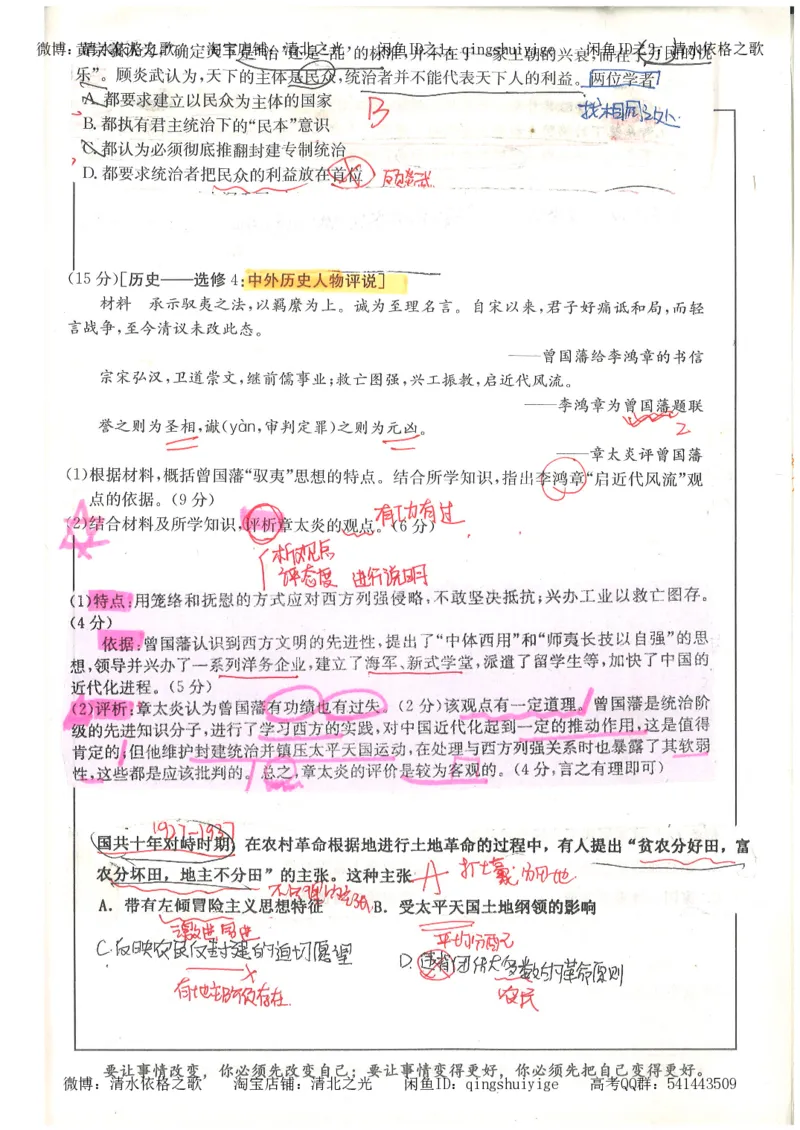 微博：清水依格之歌 淘宝店铺：清北之光 闲鱼ID之1：qingshuiyige 闲鱼ID之2：清水依格之歌
乐”。顾炎武认为,天下的主体是民众,统治者并不能代表天下人的利益。两位学者
A. 都要求建立以民众为主体的国家
B. 都执有君主统治下的“民本”意识
B
找相同之处.
C. 都认为必须彻底推翻封建专制统治
D. 都要求统治者把民众的利益放在首位
顾炎武
(15 分)[历史——选修 4:中外历史人物评说]
材料 承示驭夷之法,以羁縻为上。诚为至理名言。自宋以来,君子好痛诋和局,而轻
言战争,至今清议未改此态。
——曾国藩给李鸿章的书信
宗宋弘汉,卫道崇文,继前儒事业;救亡图强,兴工振教,启近代风流。
——李鸿章为曾国藩题联
誉之则为圣相,谳(yàn,审判定罪)之则为元凶。
2
——章太炎评曾国藩
(1)根据材料,概括曾国藩“驭夷”思想的特点。结合所学知识,指出李鸿章“启近代风流”观
点的依据。(9 分)
(2)结合材料及所学知识,评析章太炎的观点。(6 分)
有功有过
析观点
评态度 进行说明
(1)特点:用笼络和抚慰的方式应对西方列强侵略,不敢坚决抵抗;兴办工业以救亡图存。
(4 分)
依据:曾国藩认识到西方文明的先进性,提出了“中体西用”和“师夷长技以自强”的思
想,领导并兴办了一系列洋务企业,建立了海军、新式学堂,派遣了留学生等,加快了中国的
近代化进程。(5 分)
(2)评析:章太炎认为曾国藩有功绩也有过失。(2 分)该观点有一定道理。曾国藩是统治阶
级的先进知识分子,进行了学习西方的实践,对中国近代化起到一定的推动作用,这是值得
肯定的,但他维护封建统治并镇压太平天国运动,在处理与西方列强关系时也暴露了其软弱
性,这些都是应该批判的。总之,章太炎的评价是较为客观的。(4 分,言之有理即可)
1927-1937
国共十年对峙时期，在农村革命根据地进行土地革命的过程中，有人提出“贫农分好田，富
农分坏田，地主不分田”的主张。这种主张
A
A．带有左倾冒险主义思想特征 B．受太平天国土地纲领的影响
激进冒进
平均分配
C.反映农民反封建的迫切愿望 D.违背团结大多数的革命原则
有地主的依存在.
农民
要让事情改变，你必须先改变自己；要让事情变得更好，你必须先把自己变得更好。
微博：清水依格之歌 淘宝店铺：清北之光 闲鱼ID：qingshuiyige 高考QQ群：541443509